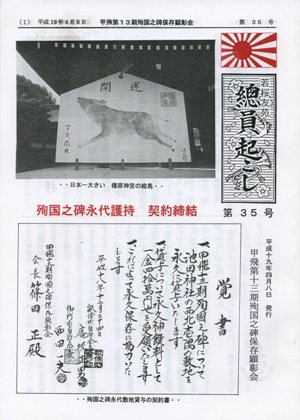 (1) 平成19年4月8日 甲飛第13期殉国之碑保存顕彰会 第35号
若桜友苑
總員起こし
第35号
平成十九年四月八日 発行
甲飛第十三期殉国之碑保存顕彰会
開運
‥日本一大きい 橿原神宮の絵馬‥
殉国之碑永代護持 契約締結
覚書
一、甲飛十三期殉国之碑について
池田神社の西北壱隅の敷地を
永久に貸与いたします
一、貸与について永久神饌料として
一金四拾萬円也を
します
平成十八年十二月二十四日
甲飛第十三期殉国之碑保存顕彰会
会長 篠田 正殿
‥殉国之碑永代敷地貸与の契約書‥